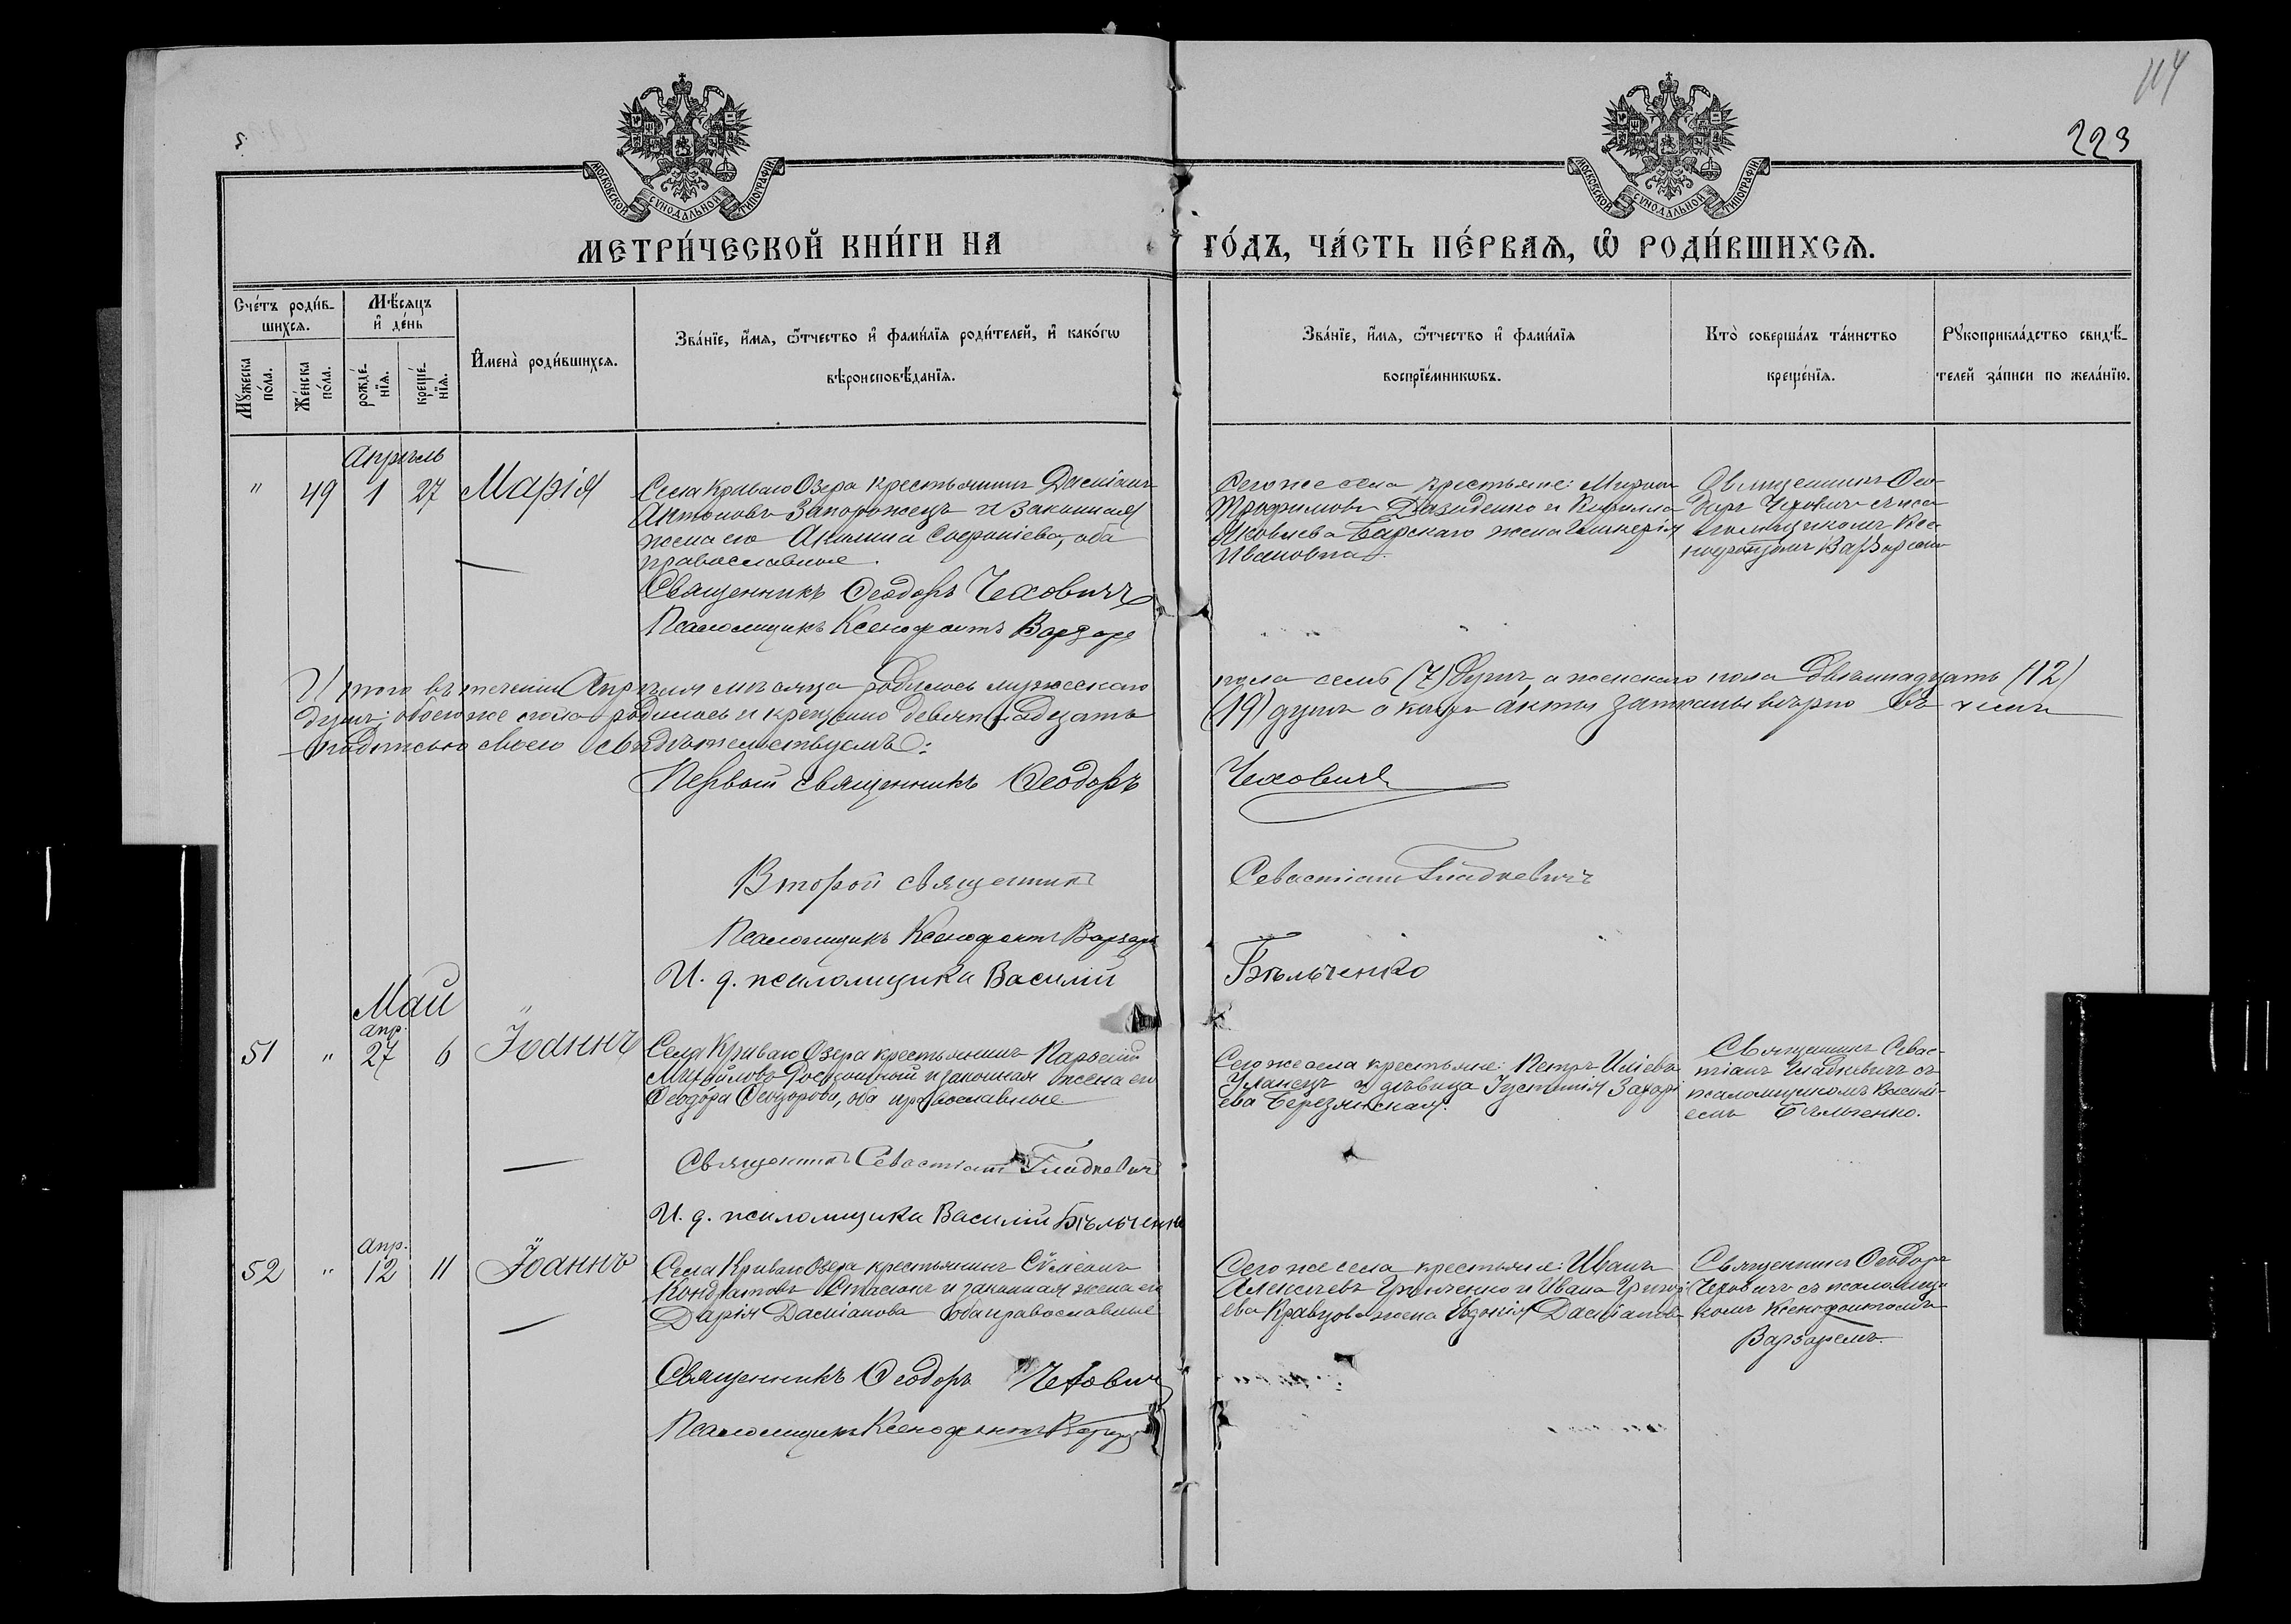 114
223
МОСКОВСКОЙ СѴНОДАЛЬНОЙ ТИПОГРАФІИ
МОСКОВСКОЙ СѴНОДАЛЬНОЙ ТИПОГРАФІИ
МЕТРИ́ЧЕСКОЙ КНИ́ГИ НА ГО́ДЪ, ЧА́СТЬ ПЕ́РВАѦ, Ѿ РОДИ́ВШИХСѦ.
Сче́тъ роди́в-
шихсѧ.
Мꙋ́жеска по́ла.
Же́нска по́ла.
Мѣ́сѧцъ
и҆ де́нь
рожде́-
нїѧ.
креще́-
нїѧ.
И҆мена̀ роди́вшихсѧ.
Зва́нїе, и҆́мѧ, ѻ҆́тчество и҆ фами́лїѧ роди́телей, и҆ како́гѡ
вѣроисповѣ́данїѧ.
Зва́нїе, и҆́мѧ, ѻ҆́тчество и҆ фами́лїѧ
воспрїе́мникѡвъ.
Кто̀ соверша́лъ та́инство
креще́нїѧ.
Рꙋкоприкла́дство свидѣ́-
телей за́писи по жела́нїю.
Апрѣль
" 49 1 27 Марія
Села Криваго Озера крестьянинъ Даміанъ
Антоновъ Запорожецъ и законная
жена его Акилина Софроніева, оба
православные.
Священникъ Ѳеодоръ Чеховичъ
Псаломщикъ Ксенофонтъ Варзаре
Сего же села крестьяне:
Трофимовъ Давиденко и Кирилла
Яковлева Барскаго жена Гликерія
Ивановна.
Священникъ Ѳео-
доръ Чеховичъ съ пса-
ломщикомъ Ксе-
нофонтомъ Варзаремъ
Итого въ теченіи Апрѣля мѣсяца родилось мужескаго пола семь (7) душъ, а женскаго пола двѣнадцать (12)
душъ; обоего же пола родилось и крещено девятнадцать (19) душъ о коихъ акты записаны вѣрно въ чемъ
подписью своею свидѣтельствуемъ:
Первый священникъ Ѳеодоръ Чеховичъ
Второй священникъ Севастіанъ Гладкевичъ
Псаломщикъ Ксенофонтъ Варзаре
И. д. псаломщика Василій Бѣльченко
Май
51 " апр. 27 6 Іоаннъ
Села Криваго Озера крестьянинъ
Михайловъ и законная жена его
Ѳеодора Ѳеодорова, оба православные
Священникъ Севастіанъ Гладкевичъ
И. д. псаломщика Василій Бѣльченко
Сего же села крестьяне: Петръ Иліевъ
Уланецъ и дѣвица Іустинія Захарі
ева Березянская.
Священникъ Севас-
тіанъ Гладкевичъ съ
псаломщикомъ Василі-
емъ Бѣльченко.
52 " апр. 12 11 Іоаннъ
Села Криваго Озера крестьянинъ Сѵмеонъ
Кондратовъ Стасюкъ и законная жена его
Дарія Даміанова оба православные
Священникъ Ѳеодоръ Чеховичъ
Псаломщикъ Ксенофонтъ Варзаре
Сего же села крестьяне: Иванъ
Алексѣевъ Гринченко и Ивана Григорі
ева Кравцова жена Евдокія Даміанова
Священникъ Ѳеодоръ
Чеховичъ съ псаломщи
комъ Ксенофонтомъ
Варзаремъ.